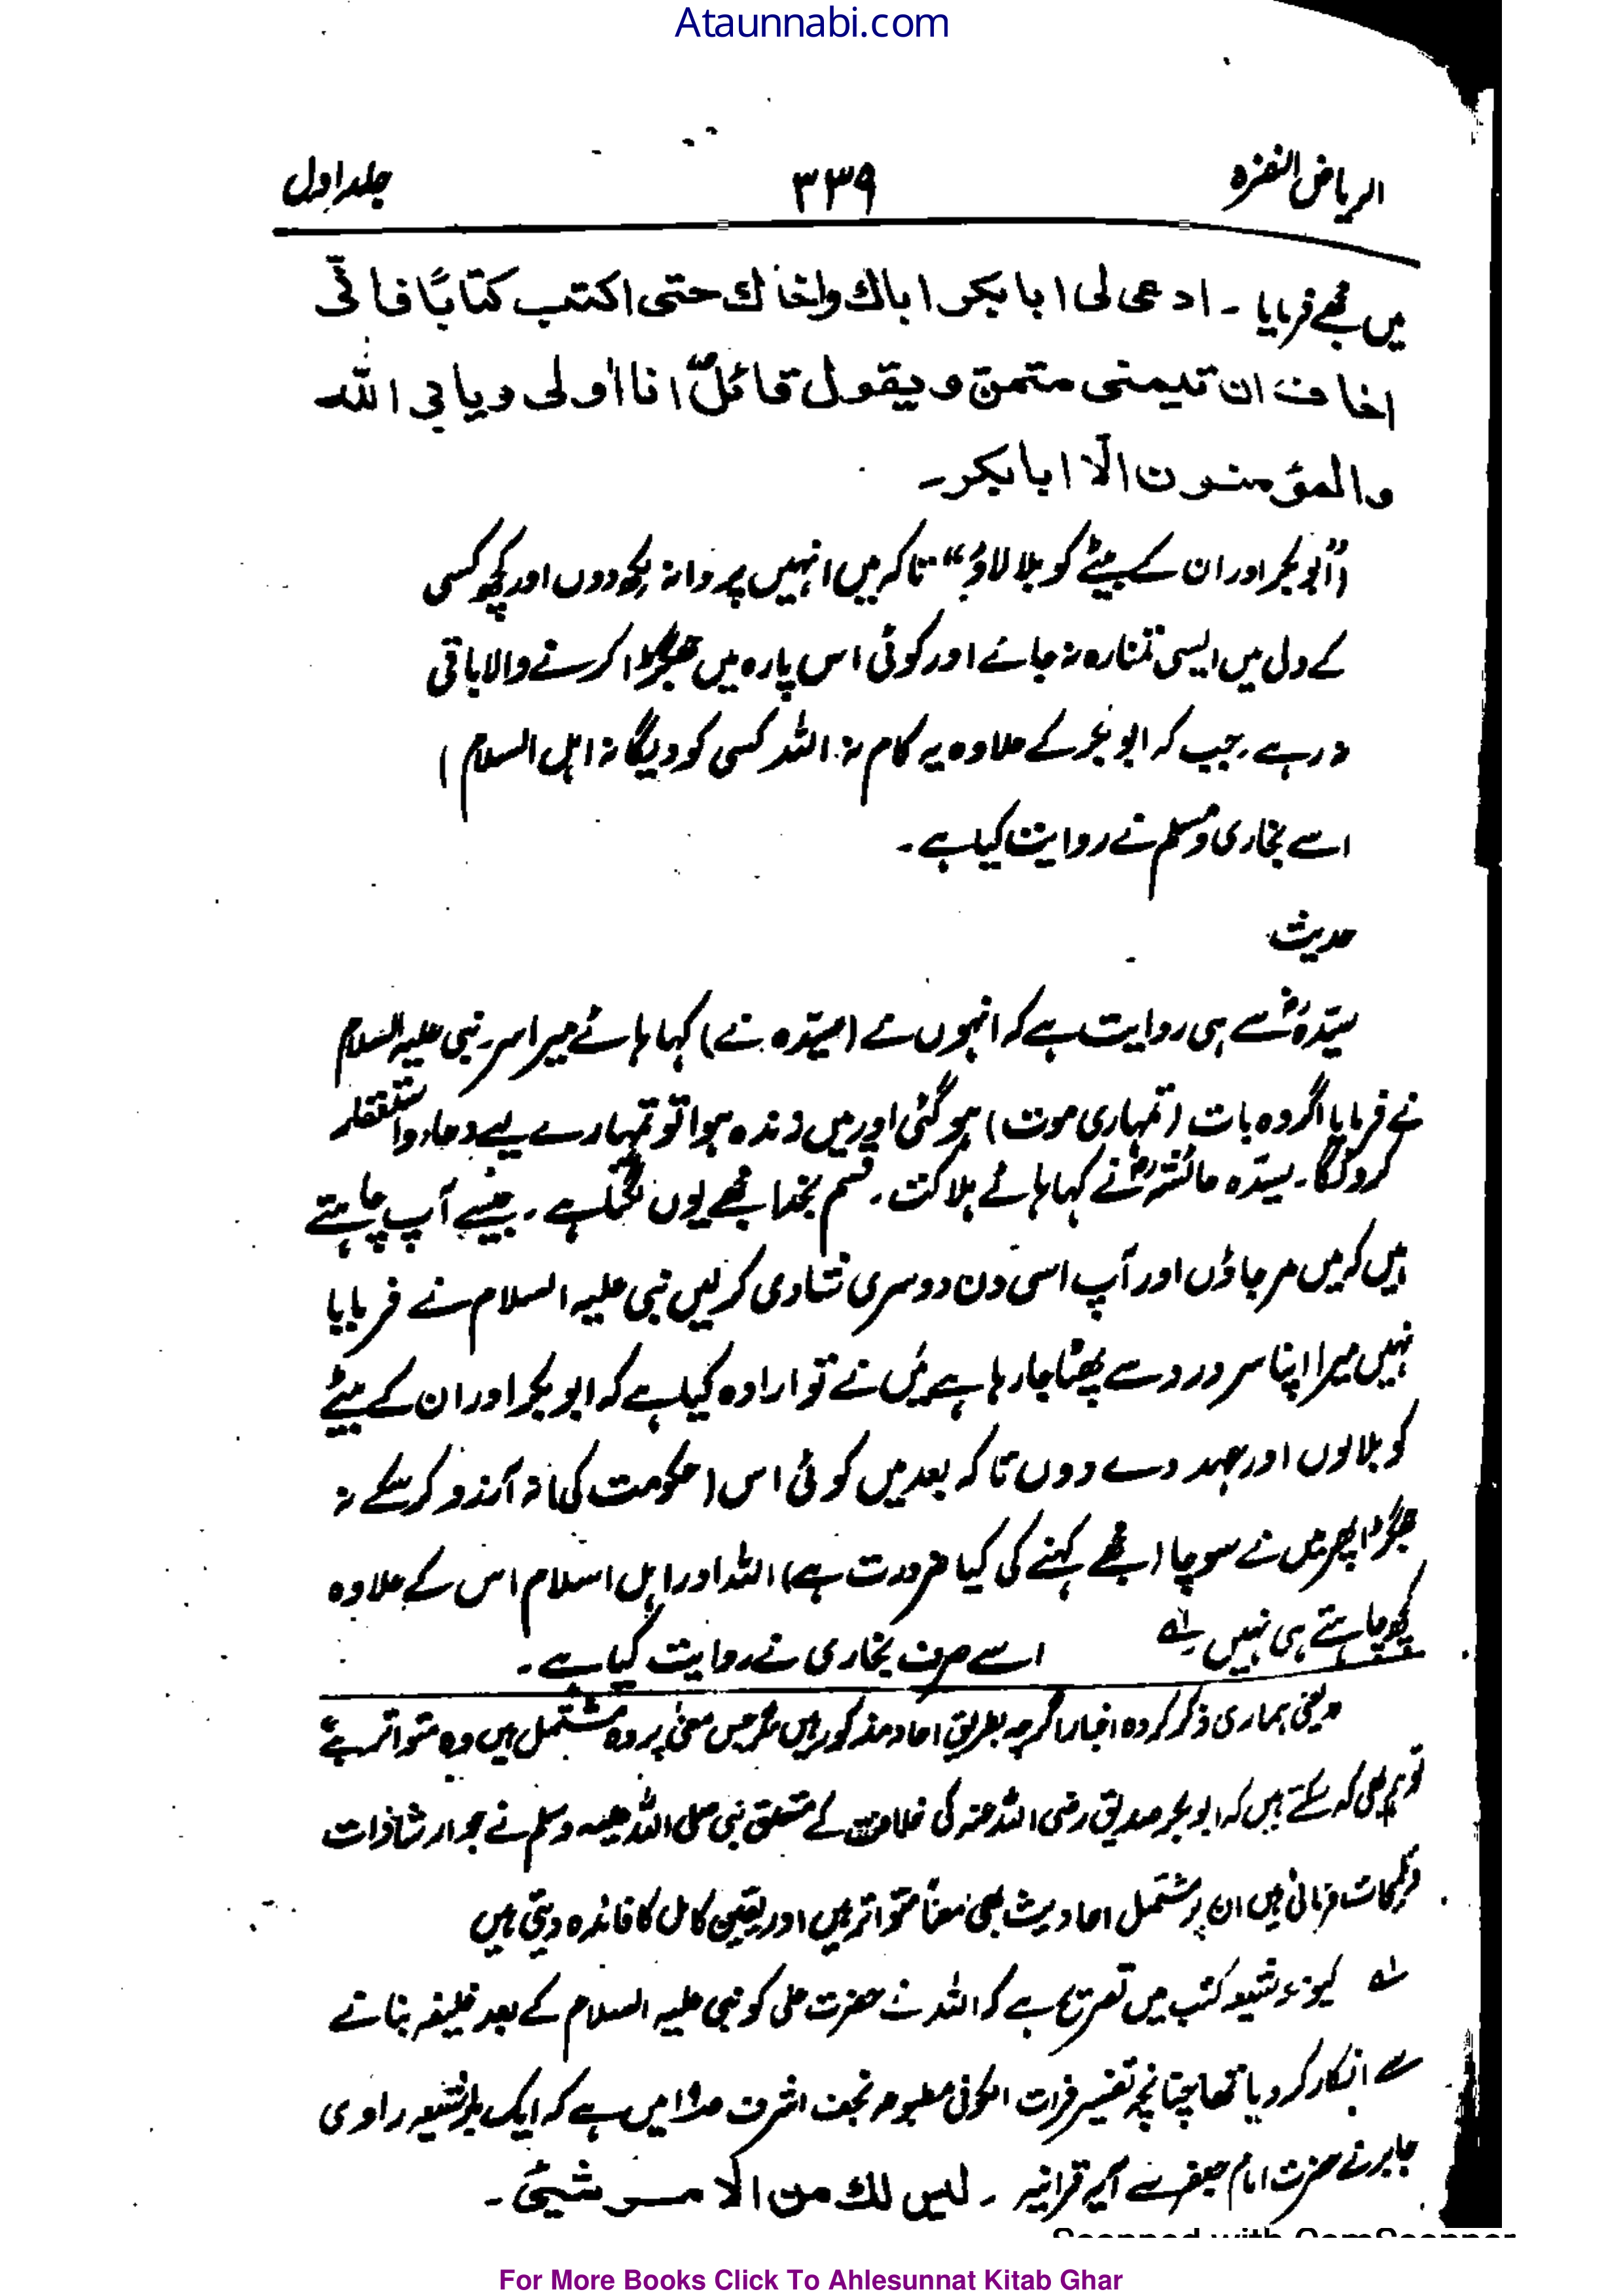 Ataunnabi.com
الریاض النضرہ ۳۳۹ جلد اول
میں مجھے فرمایا ۔ ادعی لی ابا بکر اباك واخاك حتی اکتب کتابًا فانّی
اخاف ان تیمنی متمنّ و یقول قائلٌ انا اولی ویابی الله
والمؤمنون الّا ابابکر۔
(”ابوبکر اور ان کے بیٹے کو بلا لاؤ“ تاکہ میں انہیں پروانہ لکھ دوں اور کچھ کسی
کے دل میں ایسی تمنا رہ نہ جائے اور کوئی اس پارہ میں جھگڑا کرنے والا باقی
نہ رہے ۔ جب کہ ابوبکر کے علاوہ یہ کام نہ اللہ کسی کو دیگا نہ اہل السلام)
اسے بخاری و مسلم نے روایت کیا ہے ۔
حدیث
سیّدہؓ سے ہی روایت ہے کہ انہوں نے (سیّدہ نے) کہا ہائے میرا سر۔ نبی علیہ السلام
نے فرمایا اگر وہ بات (تمہاری موت) ہو گئی اور میں زندہ ہوا تو تمہارے لیے دعاء و استغفار
کروں گا۔ سیّدہ عائشہؓ نے کہا ہائے ہلاکت ۔ قسم بخدا مجھے یوں لگتا ہے ۔ جیسے آپ چاہتے
ہیں کہ میں مر جاؤں اور آپ اسی دن دوسری شادی کر لیں نبی علیہ السلام نے فرمایا
نہیں میرا اپنا سر درد سے پھٹا جا رہا ہے میں نے تو ارادہ کیا ہے کہ ابوبکر اور ان کے بیٹے
کو بلا لوں اور عہد دے دوں تاکہ بعد میں کوئی اس (حکومت کی) نہ آرزو کر سکے نہ
جھگڑا پھر میں نے سوچا (مجھے کہنے کی کیا ضرورت ہے) اللہ اور اہل اسلام اس کے علاوہ
کچھ چاہتے ہی نہیں ۔ لہ اسے صرف بخاری نے روایت کیا ہے ۔
ویعنی ہماری ذکر کردہ اخبار اگرچہ بطریق احاد مذکور ہیں مگر جس معنیٰ پر وہ مشتمل ہیں وہ متواتر ہے
تو ہم بھی کہہ سکتے ہیں کہ ابوبکر صدیق رضی اللہ عنہ کی خلافت کے متعلق نبی صلی اللہ علیہ وسلم نے جو ارشادات
و کلمات فرمائے ہیں ان پر مشتمل احادیث بھی معنًا متواتر ہیں اور یقین کامل کا فائدہ دیتی ہیں
لہ کیونکہ شیعہ کتب میں تصریح ہے کہ اللہ نے حضرت علی کو نبی علیہ السلام کے بعد خلیفہ بنانے
سے انکار کر دیا تھا چنانچہ تفسیر فرات الکوفی مطبوعہ نجف اشرف میں ہے کہ ایک شیعہ راوی
جابر نے حضرت امام جعفر سے آیہ قرآنیہ ۔ لیس لك من الامر شیئ ۔
Scanned with CamScanner
For More Books Click To Ahlesunnat Kitab Ghar